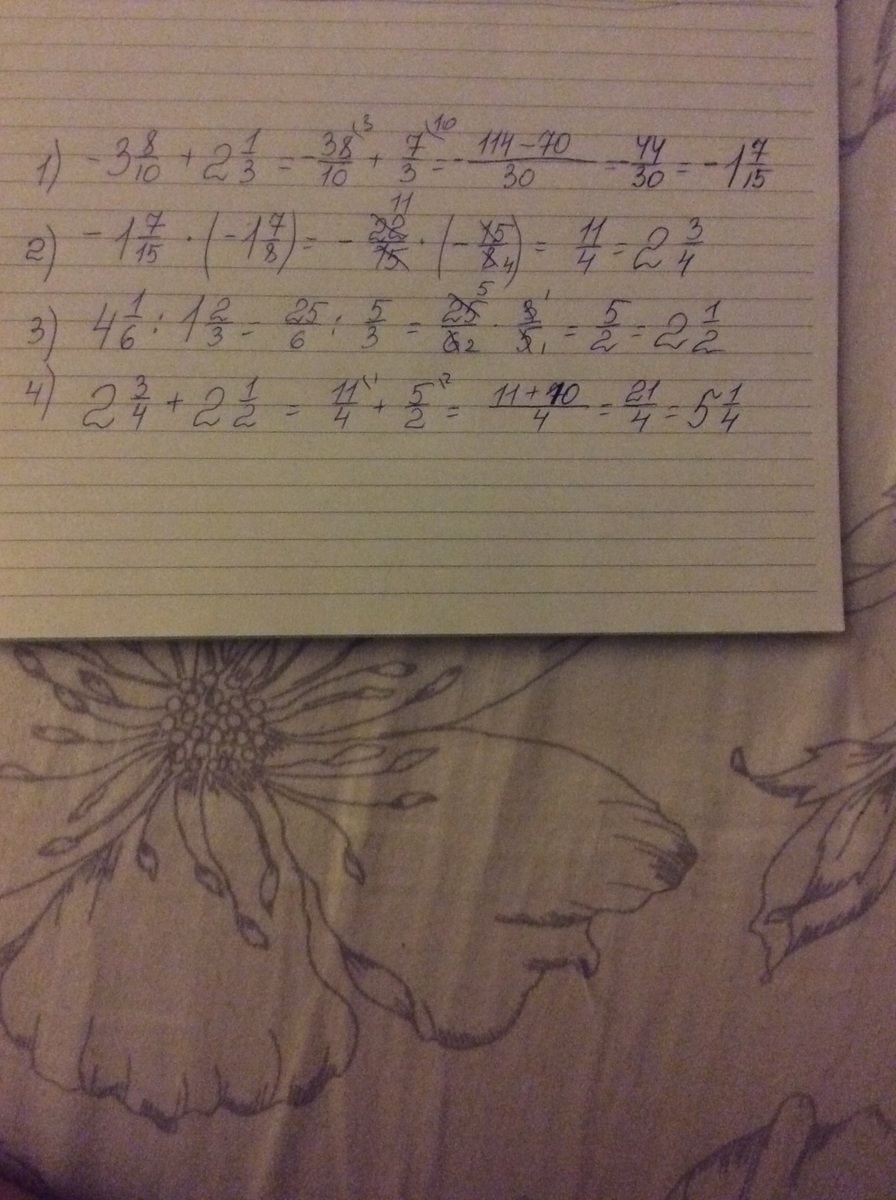 1) -3 8/10 + 2 1/3 = -38/10 \3 + 7/3 \10 = -(114-70)/30 = -44/30 = -1 7/15
2) -1 7/15 · (-1 7/8) = -22/15 11 · (-15/8 4) = 11/4 = 2 3/4
3) 4 1/6 : 1 2/3 = 25/6 : 5/3 = 25/6 5 2 · 3/5 1 1 = 5/2 = 2 1/2
4) 2 3/4 + 2 1/2 = 11/4 \1 + 5/2 \2 = (11+10)/4 = 21/4 = 5 1/4